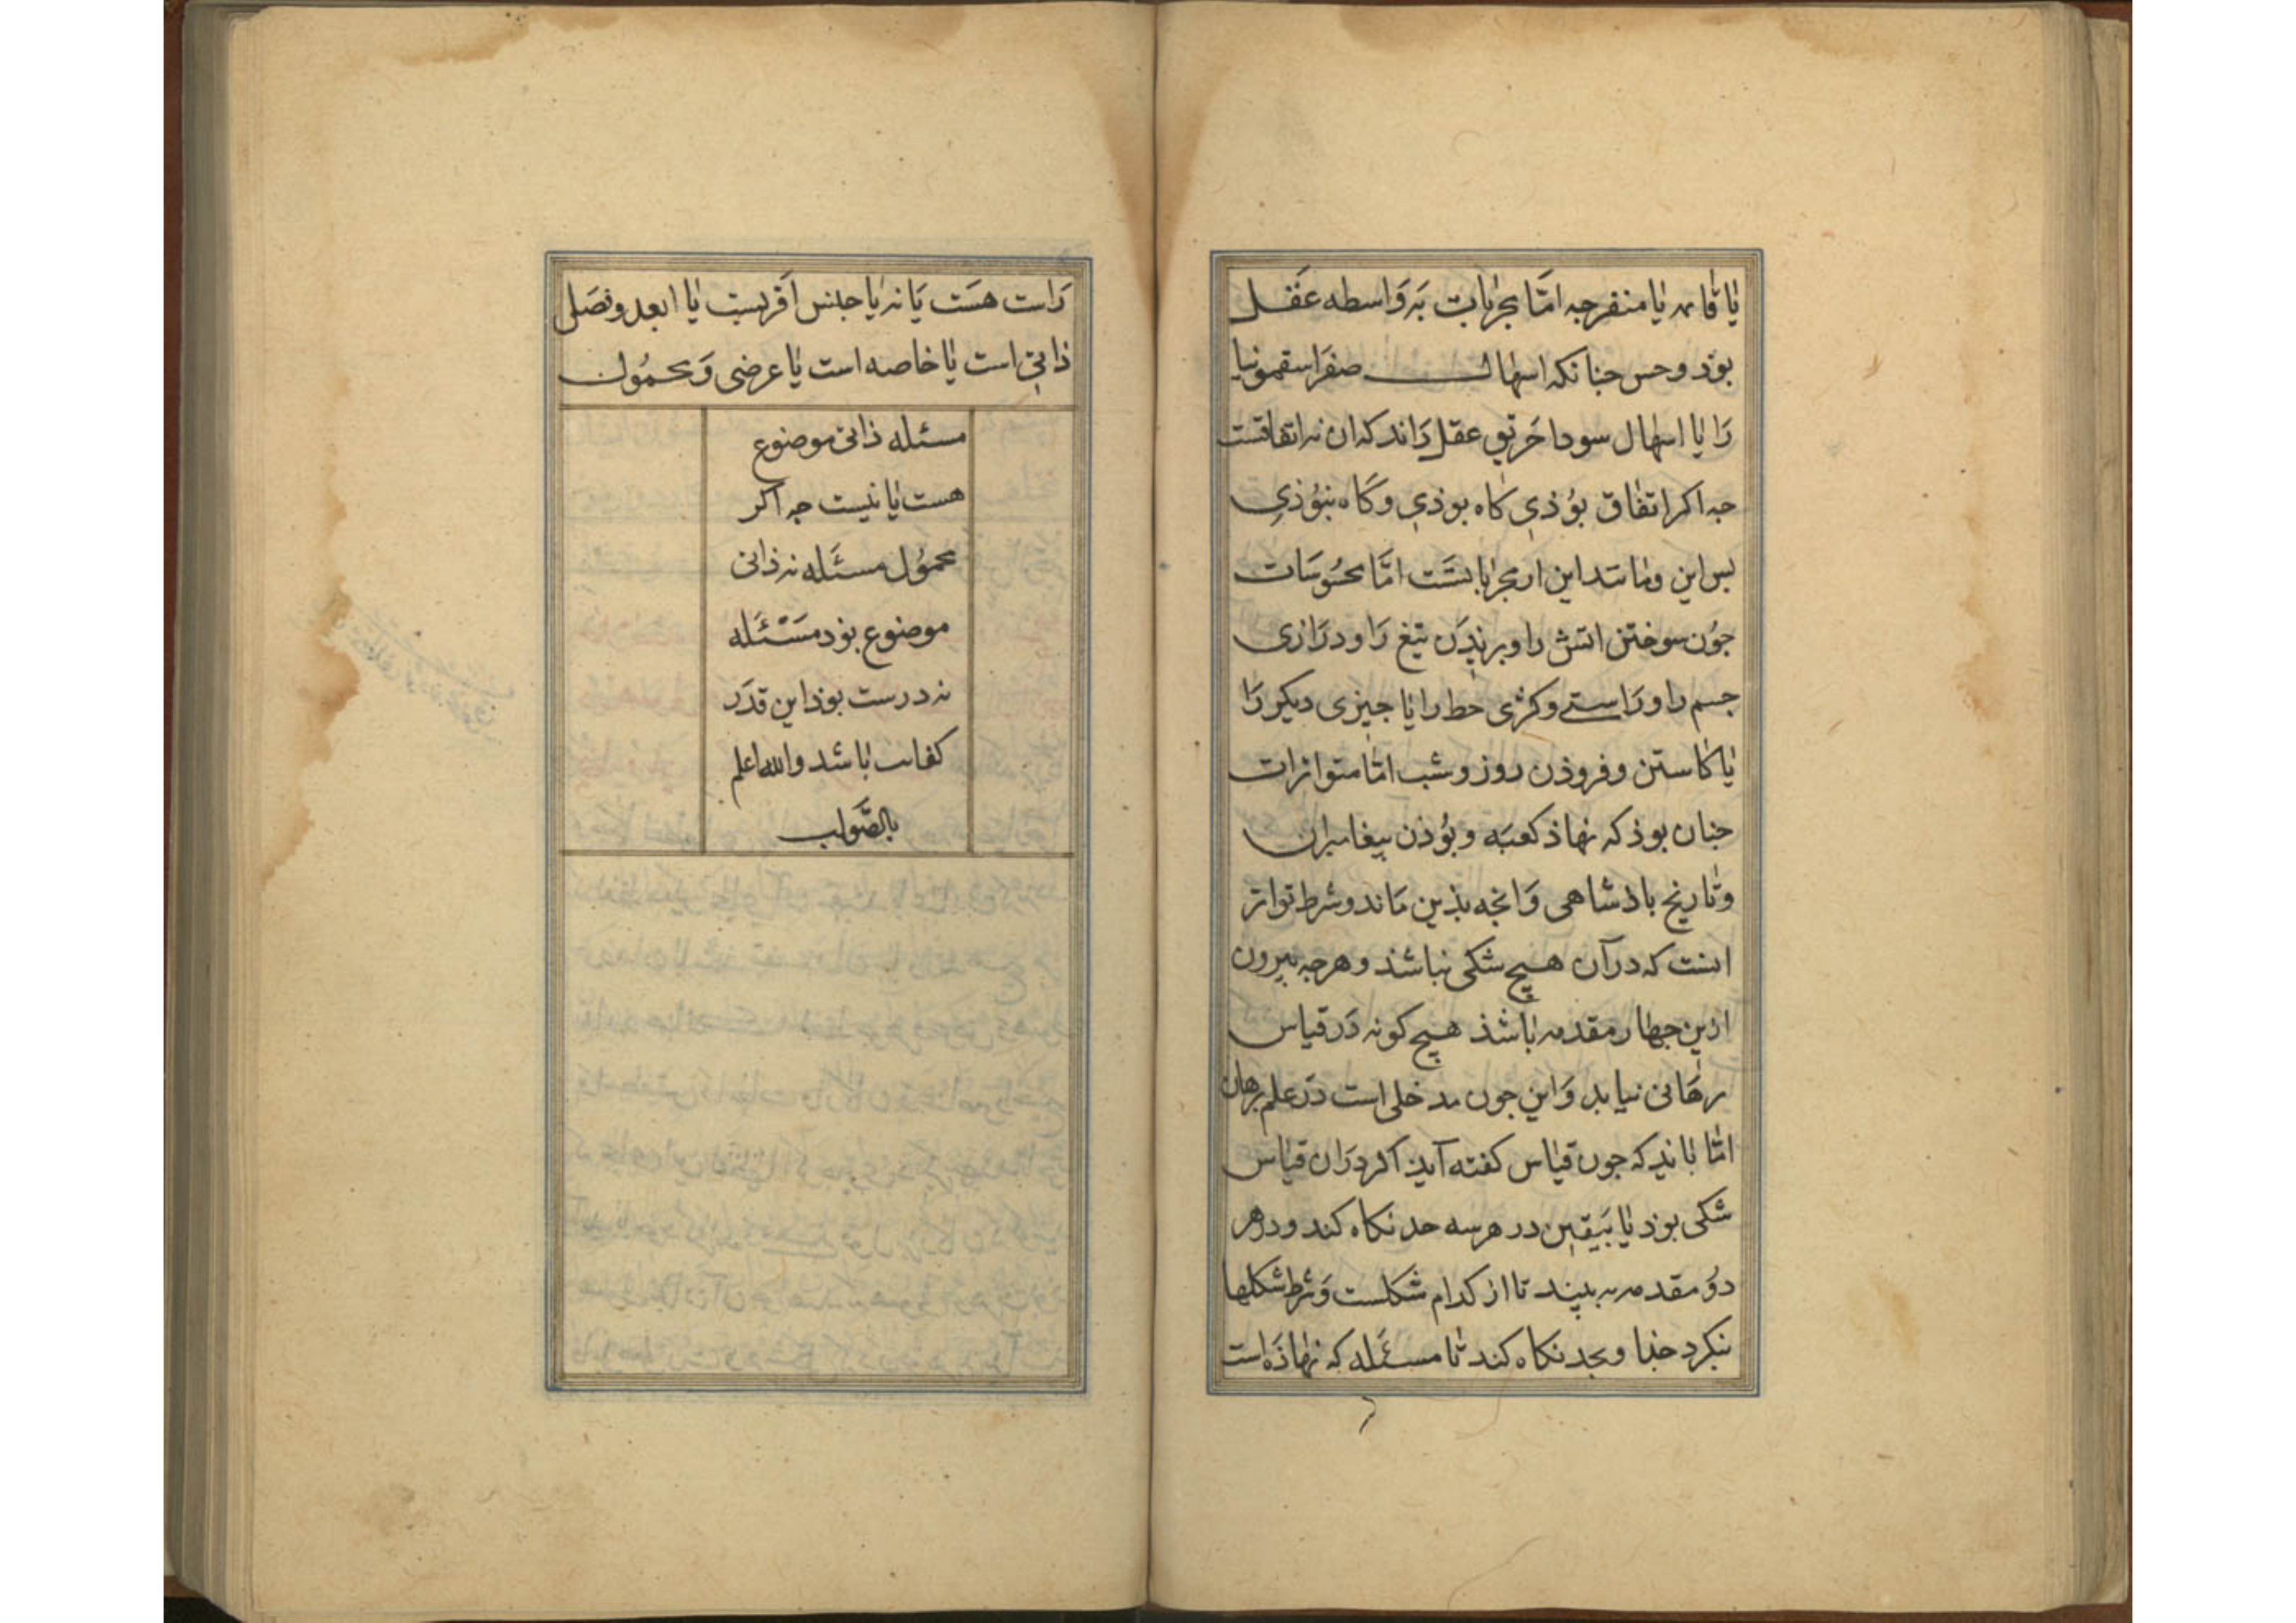 یا قائمه یا منفرجه امّا مجرّبات به واسطه عقل
بوذ و حس جنانکه اسهال صفرا سقمونیا
را یا اسهال سودا خربق عقل داند که ان نه اتفاقست
جه اکر اتفاق بوذی کاه بوذی و کاه نبوذی
بس این و مانند این از مجرباتست امّا محسوسات
جون سوختن اتش را و بریدن تیغ را و درازی
جسم را و راستی و کژی خط را یا جیزی دیکر را
یا کاستن و فزوذن روز و شب امّا متواترات
جنان بوذ که نهاذ کعبه و بوذن بیغامبران
و تاریخ باذشاهی و انجه بذین ماند و شرط تواتر
انست که در آن هیچ شکی نباشذ و هرجه بیرون
ازین جهار مقدمه باشذ هیچ کونه در قیاس
برهانی نیاید و این جون مدخلی است در علم برهان
امّا باید که جون قیاس کفته آید اکر دران قیاس
شکی بوذ یا بیقین در هر سه حد نکاه کند و در هر
دو مقدمه ببیند تا از کدام شکلست و شرط شکلها
بنکرد خذا و بحد نکاه کند تا مسئله که نهاذه است
راست هست یا نه یا جنس اقربست یا ابعد و فصلی
ذاتی است یا خاصه است یا عرضی و محمول
مسئله ذاتی موضوع
هست یا نیست جه اکر
محمول مسئله نه ذاتی
موضوع بوذ مسئله
نه درست بوذ این قدر
کفایت باشد والله اعلم
بالصّواب